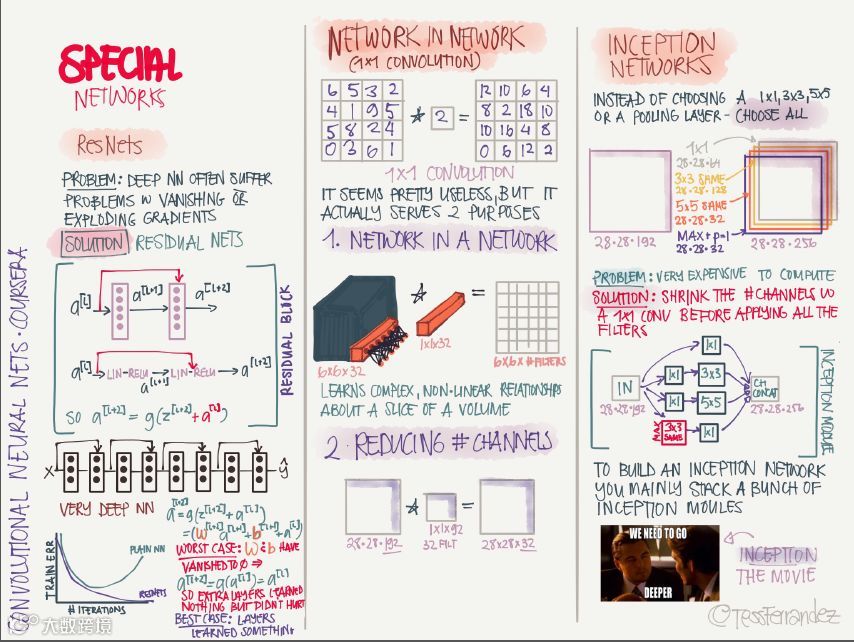 CONVOLUTIONAL NEURAL NETS · COURSERA
SPECIAL
NETWORKS
ResNets
PROBLEM: DEEP NN OFTEN SUFFER
PROBLEMS W VANISHING OR
EXPLODING GRADIENTS
SOLUTION RESIDUAL NETS
a[l] a[l+1] a[l+2]
a[l] LIN-RELU LIN-RELU a[l+2]
a[l+1]
RESIDUAL BLOCK
SO a[l+2] = g(z[l+2] + a[l])
X ŷ
VERY DEEP NN
a[l+2] = g(z[l+2] + a[l])
= (W[l+2] a[l+1] + b[l+2] + a[l])
WORST CASE: W & b HAVE
VANISHED TO 0 ⇒
a[l+2] = g(a[l]) = a[l]
SO EXTRA LAYERS LEARNED
NOTHING BUT DIDN'T HURT
BEST CASE: LAYERS
LEARNED SOMETHING
TRAIN ERR
PLAIN NN
RESNETS
# ITERATIONS
NETWORK IN NETWORK
(1x1 CONVOLUTION)
6 5 3 2 12 10 6 4
4 1 9 5 * 2 = 8 2 18 10
5 8 2 4 10 16 4 8
0 3 6 1 0 6 12 2
1x1 CONVOLUTION
IT SEEMS PRETTY USELESS, BUT IT
ACTUALLY SERVES 2 PURPOSES
1. NETWORK IN A NETWORK
* =
1x1x32
6x6x32 6x6x # FILTERS
LEARNS COMPLEX, NON-LINEAR RELATIONSHIPS
ABOUT A SLICE OF A VOLUME
2. REDUCING # CHANNELS
* =
1x1x192
28·28·192 32 FILT 28x28x32
INCEPTION
NETWORKS
INSTEAD OF CHOOSING A 1x1, 3x3, 5x5
OR A POOLING LAYER - CHOOSE ALL
1x1
28·28·64
3x3 SAME
28·28·128
5x5 SAME
28·28·32
MAX + p=1
28·28·32
28·28·192 28·28·256
PROBLEM: VERY EXPENSIVE TO COMPUTE
SOLUTION: SHRINK THE # CHANNELS W
A 1x1 CONV BEFORE APPLYING ALL THE
FILTERS
1x1
IN 1x1 3x3 CH
28·28·192 1x1 5x5 CONCAT
28·28·256
MAX 3x3 SAME 1x1
INCEPTION MODULE
TO BUILD AN INCEPTION NETWORK
YOU MAINLY STACK A BUNCH OF
INCEPTION MODULES
WE NEED TO GO
DEEPER
INCEPTION
THE MOVIE
@TessFerrandez
大数跨境